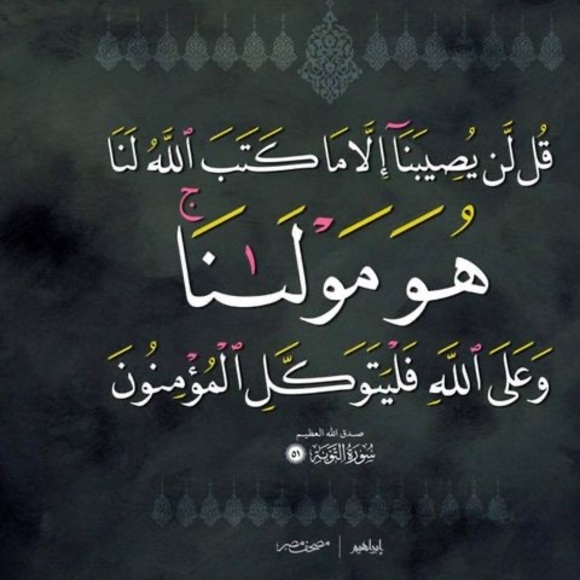 قُل لَّن يُصِيبَنَآ إِلَّا مَا كَتَبَ ٱللَّهُ لَنَا
هُوَ مَوْلَىٰنَاۚ
وَعَلَى ٱللَّهِ فَلْيَتَوَكَّلِ ٱلْمُؤْمِنُونَ
صدق الله العظيم
سُورَةُ التَّوْبَة ٥١
إبراهيم | مصحف مصر